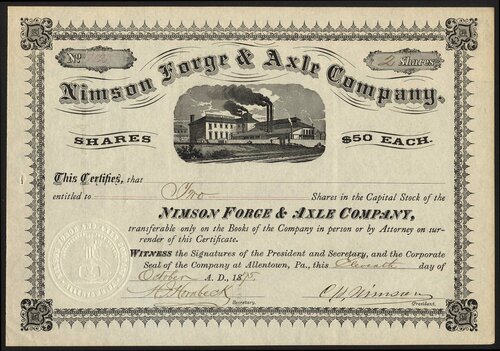 No. 2
2 Shares
Nimson Forge & Axle Company.
SHARES
$50 EACH.
This Certifies, that
entitled to Two Shares in the Capital Stock of the
NIMSON FORGE & AXLE COMPANY,
transferable only on the Books of the Company in person or by Attorney on sur-
render of this Certificate.
WITNESS the Signatures of the President and Secretary, and the Corporate
Seal of the Company at Allentown, Pa., this Eleventh day of
October A. D., 1875.
Secretary.
C. W. Nimson
President.